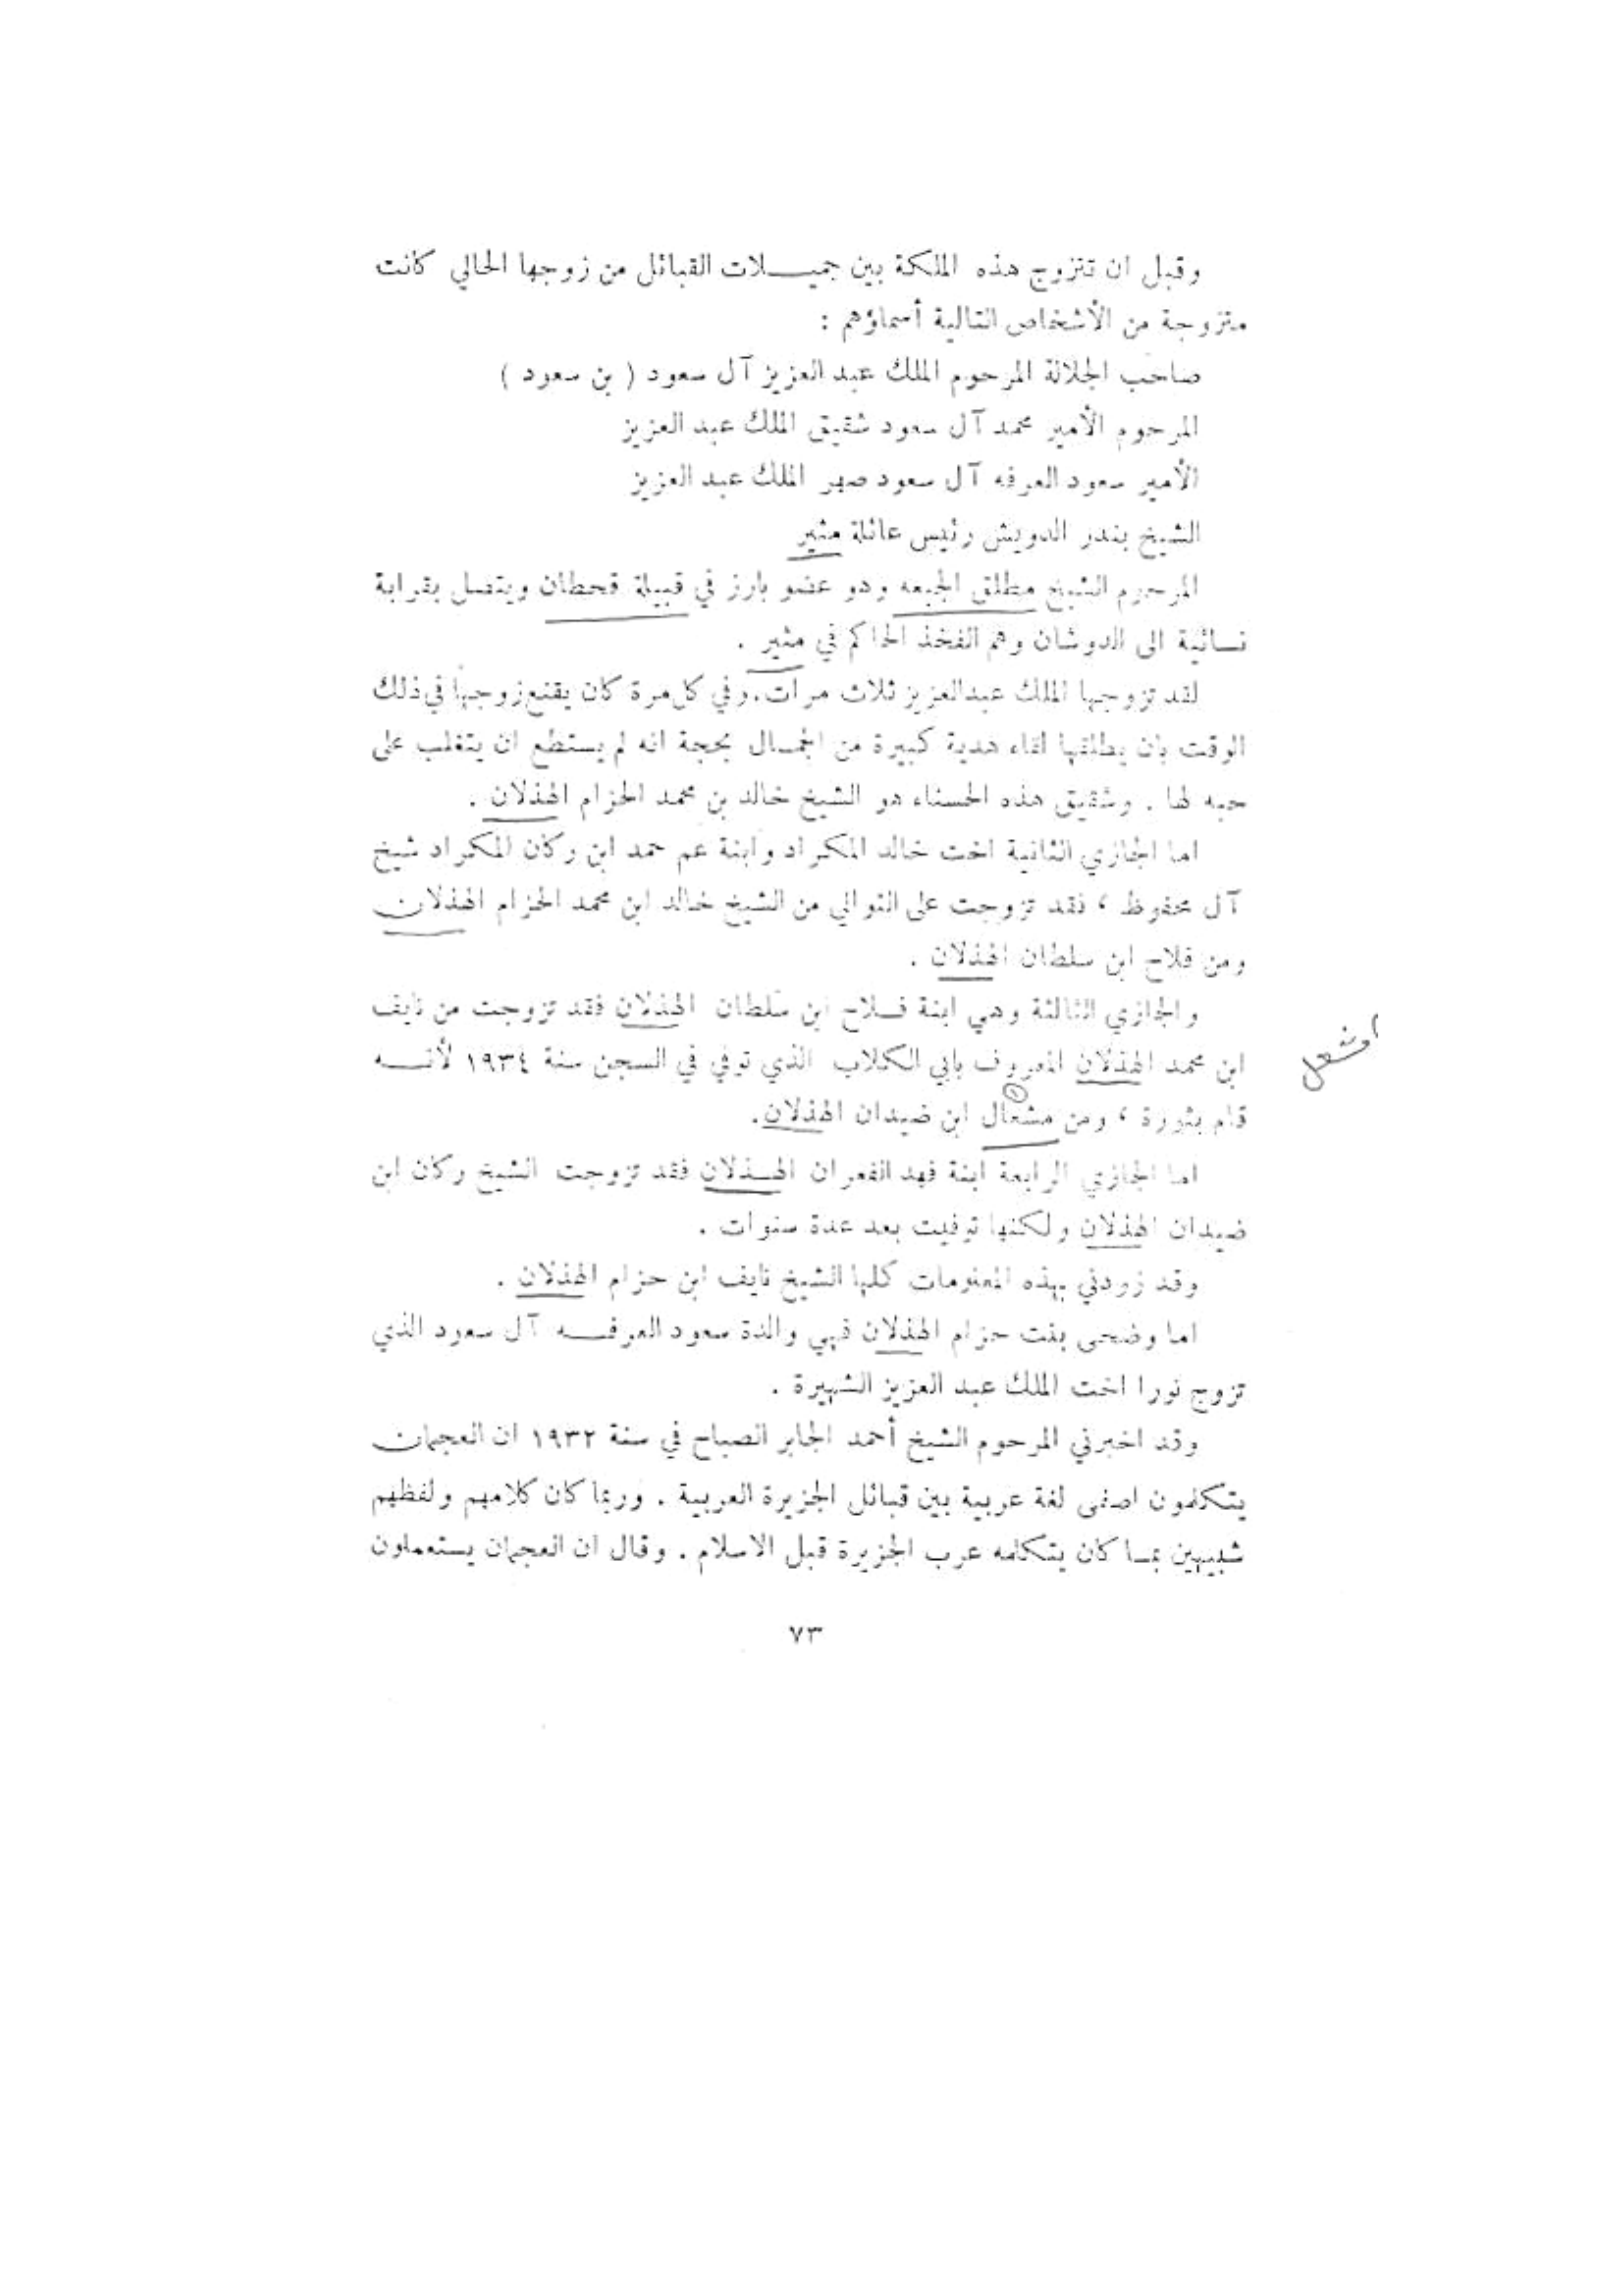 وقبل ان تتزوج هذه الملكة بين جميـــلات القبائل من زوجها الحالي كانت
متزوجة من الأشخاص التالية أسماؤهم :
صاحب الجلالة المرحوم الملك عبد العزيز آل سعود ( بن سعود )
المرحوم الأمير محمد آل سعود شقيق الملك عبد العزيز
الأمير سعود العرفه آل سعود صهر الملك عبد العزيز
الشيخ بندر الدويش رئيس عائلة مثير
المرحوم الشيخ مطلق الجبعه وهو عضو بارز في قبيلة قحطان ويتصل بقرابة
نسائية الى الدوشان وهم الفخذ الحاكم في مثير .
لقد تزوجها الملك عبدالعزيز ثلاث مرات . وفي كل مرة كان يقنع زوجها في ذلك
الوقت بان يطلقها لقاء هدية كبيرة من الجمـال بحجة انه لم يستطع ان يتغلب على
حبه لها . وشقيق هذه الحسناء هو الشيخ خالد بن محمد الحزام الهذلان .
اما الجازي الثانية اخت خالد المكراد وابنة عم حمد ابن ركان المكراد شيخ
آل محفوظ ، فقد تزوجت على التوالي من الشيخ خالد ابن محمد الحزام الهذلان
ومن فلاح ابن سلطان الهذلان .
والجازي الثالثة وهي ابنة فـلاح ابن سلطان الهذلان فقد تزوجت من نايف
ابن محمد الهذلان المعروف بابي الكلاب الذي توفي في السجن سنة ١٩٣٤ لأنـــه
قام بثورة ، ومن مشعال (١) ابن ضيدان الهذلان.
امشعل
اما الجازي الرابعة ابنة فهد الفعران الهـذلان فقد تزوجت الشيخ ركان ابن
ضيدان الهذلان ولكنها توفيت بعد عدة سنوات .
وقد زودني بهذه المعلومات كلها الشيخ نايف ابن حزام الهذلان .
اما وضحى بنت حزام الهذلان فهي والدة سعود العرفـــه آل سعود الذي
تزوج نورا اخت الملك عبد العزيز الشهيرة .
وقد اخبرني المرحوم الشيخ أحمد الجابر الصباح في سنة ١٩٣٢ ان العجمان
يتكلمون اصفى لغة عربية بين قبائل الجزيرة العربية . وربما كان كلامهم ولفظهم
شبيهين بمـا كان يتكلمه عرب الجزيرة قبل الاسلام . وقال ان العجمان يستعملون
٧٣